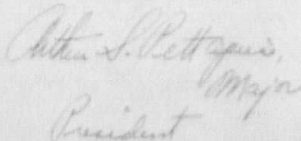 Arthur S. Pettyjohn,
Major
President